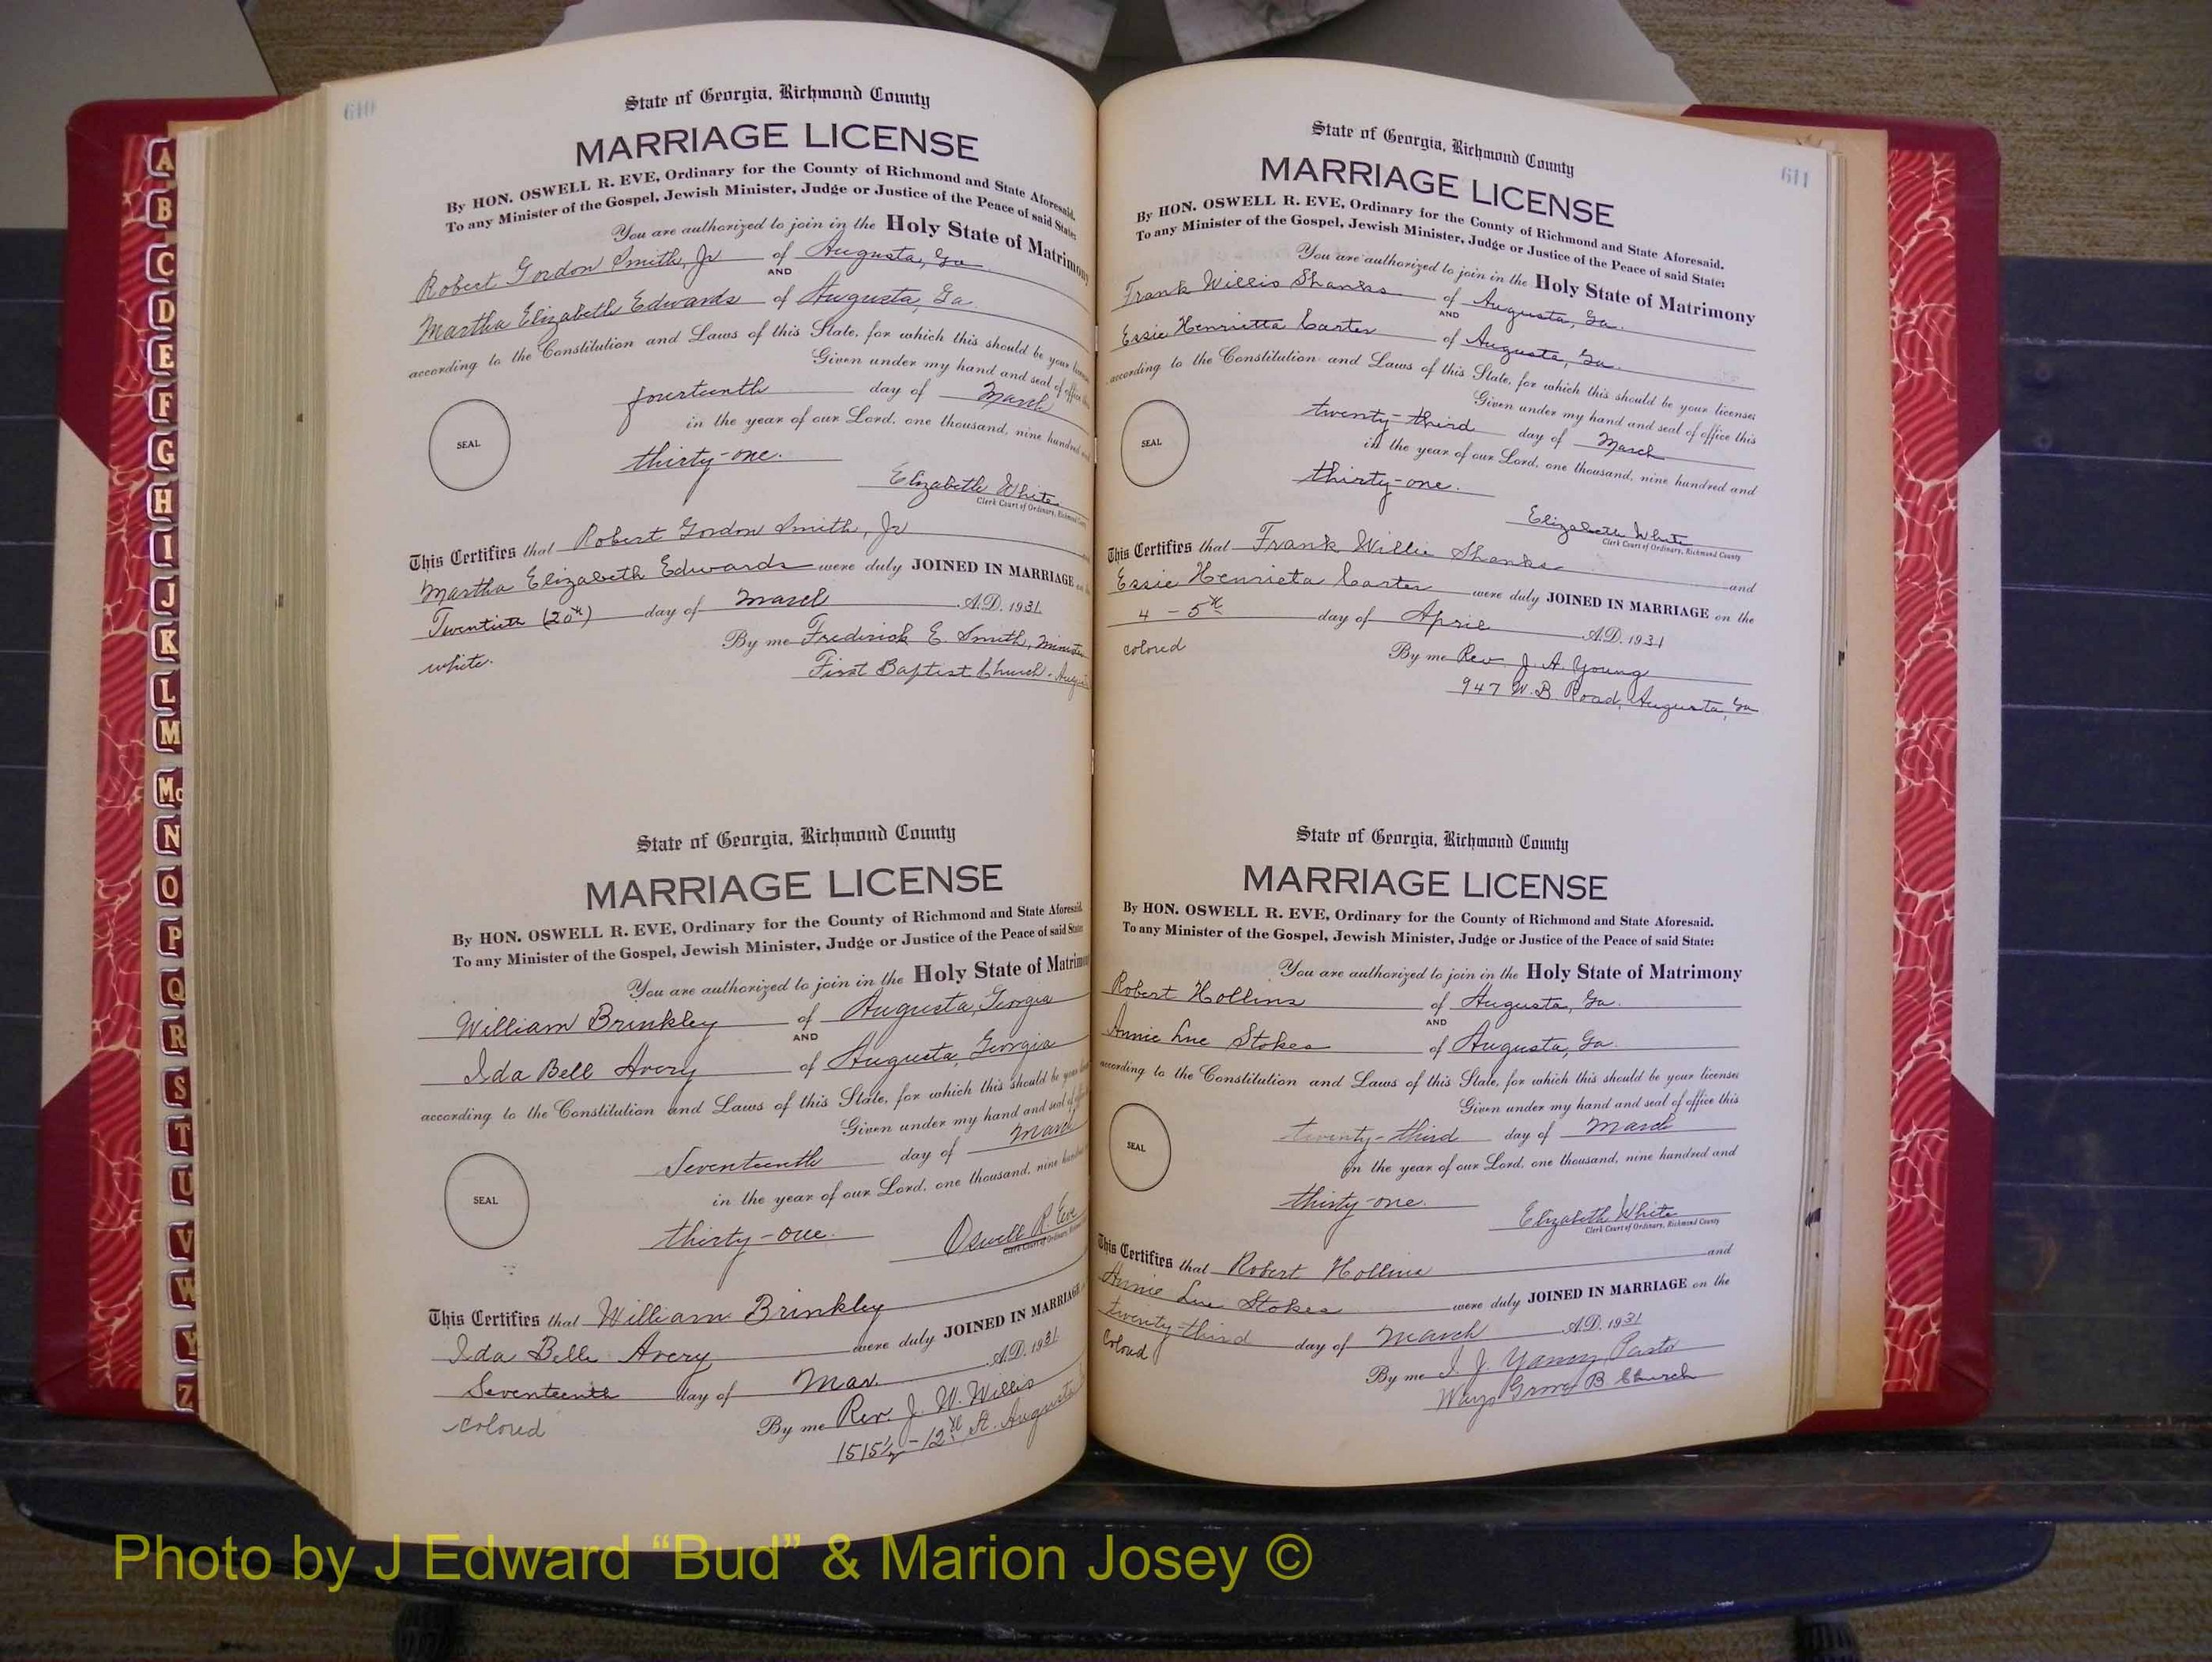 A
B
C
D
E
F
G
H
I
J
K
L
M
Mc
N
O
P
Q
R
S
T
U
V
W
Y
Z
640
State of Georgia, Richmond County
MARRIAGE LICENSE
By HON. OSWELL R. EVE, Ordinary for the County of Richmond and State Aforesaid.
To any Minister of the Gospel, Jewish Minister, Judge or Justice of the Peace of said State:
You are authorized to join in the Holy State of Matrimony
Robert Gordon Smith, Jr of Augusta, Ga
AND
Martha Elizabeth Edwards of Augusta, Ga.
according to the Constitution and Laws of this State, for which this should be your
Given under my hand and seal of office
fourteenth day of March
in the year of our Lord, one thousand, nine hundred
SEAL
thirty-one.
Elizabeth White
Clerk Court of Ordinary, Richmond
This Certifies that Robert Gordon Smith, Jr
Martha Elizabeth Edwards were duly JOINED IN MARRIAGE
Twentieth (20th) day of March A.D. 1931
By me Frederick E. Smith, Minister
white.
First Baptist Church - 
State of Georgia, Richmond County
MARRIAGE LICENSE
By HON. OSWELL R. EVE, Ordinary for the County of Richmond and State Aforesaid.
To any Minister of the Gospel, Jewish Minister, Judge or Justice of the Peace of said State
You are authorized to join in the Holy State of Matrimo
William Brinkley of Augusta, Georgia
AND
Ida Bell Avery of Augusta, Georgia
according to the Constitution and Laws of this State, for which this should be your
Given under my hand and seal of
Seventeenth day of March
SEAL
in the year of our Lord, one thousand, nine
thirty-one.
Oswell R. Eve
Clerk Court of Ordinary,
This Certifies that William Brinkley
Ida Belle Avery were duly JOINED IN MARRIAGE
Seventeenth day of Mar. A.D. 1931
colored
By me Rev. J. W. Willis
1515½ - 12th St. Augusta
611
State of Georgia, Richmond County
MARRIAGE LICENSE
By HON. OSWELL R. EVE, Ordinary for the County of Richmond and State Aforesaid.
To any Minister of the Gospel, Jewish Minister, Judge or Justice of the Peace of said State:
You are authorized to join in the Holy State of Matrimony
Frank Willis Shanks of Augusta, Ga.
AND
Essie Henrietta Carter of Augusta, Ga.
according to the Constitution and Laws of this State, for which this should be your license:
Given under my hand and seal of office this
twenty-third day of March
in the year of our Lord, one thousand, nine hundred and
SEAL
thirty-one.
Elizabeth White
Clerk Court of Ordinary, Richmond County
This Certifies that Frank Willie Shanks and
Essie Henrieta Carter were duly JOINED IN MARRIAGE on the
4 - 5th day of April A.D. 1931
colored
By me Rev J. A. Young
947 W. B. Road, Augusta, Ga
State of Georgia, Richmond County
MARRIAGE LICENSE
By HON. OSWELL R. EVE, Ordinary for the County of Richmond and State Aforesaid.
To any Minister of the Gospel, Jewish Minister, Judge or Justice of the Peace of said State:
You are authorized to join in the Holy State of Matrimony
Robert Hollins of Augusta, Ga.
AND
Annie Lue Stokes of Augusta, Ga.
according to the Constitution and Laws of this State, for which this should be your license:
Given under my hand and seal of office this
twenty-third day of March
SEAL
in the year of our Lord, one thousand, nine hundred and
thirty-one.
Elizabeth White
Clerk Court of Ordinary, Richmond County
This Certifies that Robert Hollins and
Annie Lue Stokes were duly JOINED IN MARRIAGE on the
twenty-third day of March A.D. 1931
Colored
By me Pastor
Grove B Church
Photo by J Edward “Bud” & Marion Josey ©